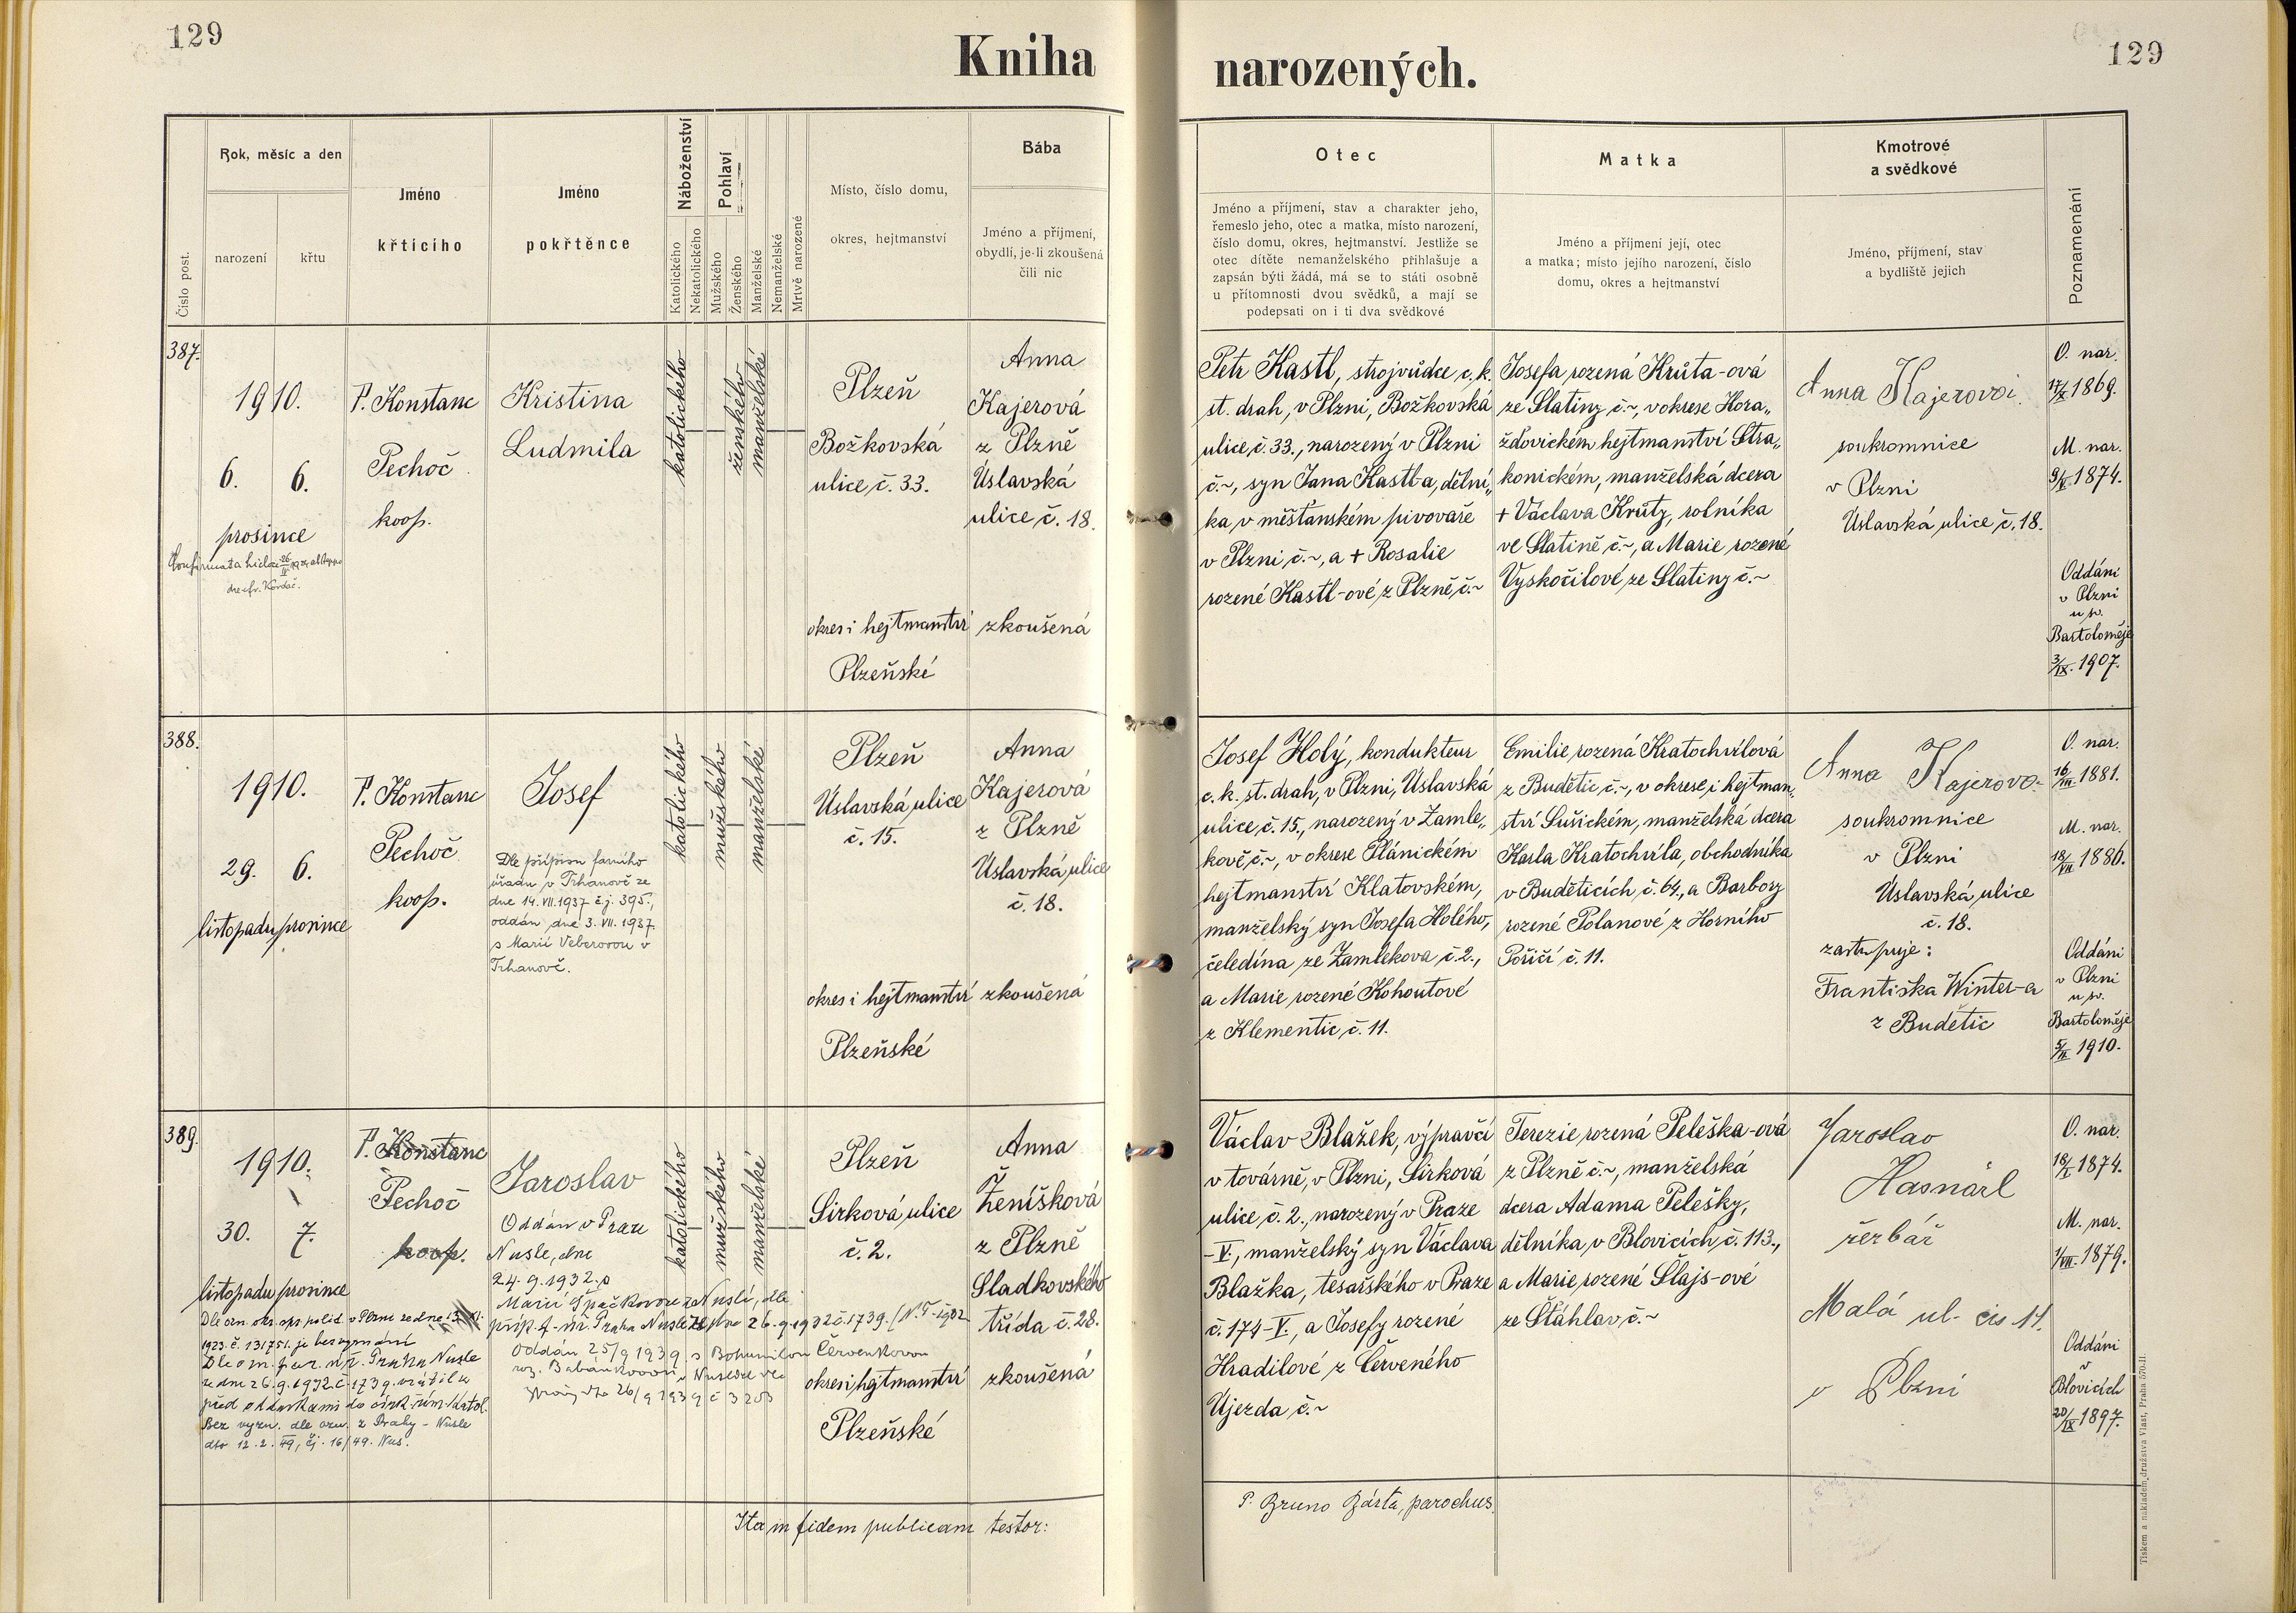 129
Kniha
narozených.
129
Číslo post.
Rok, měsíc a den
narození
křtu
Jméno
křtícího
Jméno
pokřtěnce
Náboženství
Katolického
Nekatolického
Pohlaví
Mužského
Ženského
Manželské
Nemanželské
Mrtvě narozené
Místo, číslo domu,
okres, hejtmanství
Bába
Jméno a příjmení,
obydlí, je-li zkoušená
čili nic
Otec
Jméno a příjmení, stav a charakter jeho,
řemeslo jeho, otec a matka, místo narození,
číslo domu, okres, hejtmanství. Jestliže se
otec dítěte nemanželského přihlašuje a
zapsán býti žádá, má se to státi osobně
u přítomnosti dvou svědků, a mají se
podepsati on i ti dva svědkové
Matka
Jméno a příjmení její, otec
a matka; místo jejího narození, číslo
domu, okres a hejtmanství
Kmotrové
a svědkové
Jméno, příjmení, stav
a bydliště jejich
Poznamenání
387.
1910.
6. 6.
prosince
P. Konstanc
Pechoč
koop.
Kristina
Ludmila
katolického
ženského
manželské
Plzeň
Božkovská
ulice, č. 33.
okres i hejtmanství
Plzeňské
Anna
Kajerová
z Plzně
Úslavská
ulice č. 18.
zkoušená
Petr Kastl, strojvůdce c. k.
st. drah, v Plzni, Božkovská
ulice, č. 33., narozený v Plzni
č. ~, syn Jana Kastl-a, dělní„
ka v měšťanském pivovaře
v Plzni č. ~, a + Rosalie
rozené Kastl-ové z Plzně, č. ~
Josefa rozená Krůta-ová
ze Slatiny č. ~, v okrese Hora„
žďovickém hejtmanství Stra„
konickém, manželská dcera
+ Václava Krůty, rolníka
ve Slatině č. ~, a Marie rozené
Vyskočilové ze Slatiny č. ~
Anna Kajerová.
soukromnice
v Plzni
Úslavská ulice č. 18.
O. nar.
1869.
M. nar.
1874.
Oddáni
v Plzni
u sv.
Bartoloměje
3/IX. 1907.
388.
1910.
29. 6.
listopadu prosince
P. Konstanc
Pechoč
koop.
Josef
Dle přípisu farního
úřadu v Trhanově ze
dne 14. VII. 1937 č.j. 395.,
oddán dne 3. VII. 1937
s Marií Veberovou v
Trhanově.
katolického
mužského
manželské
Plzeň
Úslavská ulice
č. 15.
okres i hejtmanství
Plzeňské
Anna
Kajerová
z Plzně
Úslavská ulice
č. 18.
zkoušená
Josef Holý, kondukteur
c. k. st. drah, v Plzni, Úslavská
ulice, č. 15., narozený v Zamle„
kově, č. ~, v okrese Plánickém
hejtmanství Klatovském,
manželský syn Josefa Holého,
čeledína ze Zamlekova č. 2.,
a Marie rozené Kohoutové
z Klementic, č. 11.
Emilie rozená Kratochvílová
z Budětic č. ~, v okrese i hejtman„
ství Sušickém, manželská dcera
Karla Kratochvíla, obchodníka
v Budětících č. 64., a Barbory
rozené Polanové z Horního
Poříčí č. 11.
Anna Kajerova.
soukromnice
v Plzni
Úslavská ulice
č. 18.
zastupuje:
Františka Winter-a
z Budětic
O. nar.
1881.
M. nar.
1886.
Oddáni
v Plzni
u sv.
Bartoloměje
1910.
389.
1910.
30. 7.
listopadu prosince
P. Konstanc
Pechoč
koop.
Jaroslav
Oddán v Praze
Nusle, dne
24. 9. 1932. s
Marií Špačkovou z Nuslí, dle
příp. f. úř. Praha Nusle ze dne 26. 9. 1932 č. 1739.
Oddán 25/9 1939 s Bohumilou Červenkovou
1923. č. 13175/. je bez vyznání
Dle ozn. far. úř. Praha Nusle
ze dne 26. 9. 1932 č. 1739. vrátil se
před oddavkami do církve řím. katol.
Bez vyzn. dle ozn. z Prahy - Nusle
dto 12. 2. 49, čj. 16/49. Nus.
katolického
mužského
manželské
Plzeň
Sirková ulice
č. 2.
okres i hejtmanství
Plzeňské
Anna
Ženíšková
z Plzně
Sladkovského
třída č. 28.
zkoušená
Václav Blažek, výpravčí
v továrně, v Plzni, Sirková
ulice, č. 2., narozený v Praze
-V., manželský syn Václava
Blažka, tesařského v Praze
č. 174-V., a Josefy rozené
Hradilové z Červeného
Újezda č. ~
Terezie rozená Peleška-ová
z Plzně č. ~, manželská
dcera Adama Pelešky,
dělníka v Blovicích, č. 113.,
a Marie rozené Šlajs-ové
ze Šťáhlav, č. ~
Jaroslav
řezbář
Malá ul. čís 14.
v Plzni
O. nar.
1874.
M. nar.
1879.
Oddáni
v
Blovicích
20/IX 1897.
Ita in fidem publicam testor:
P. Bruno Bárta, parochus.
Tiskem a nákladem družstva Vlast, Praha 570-II.